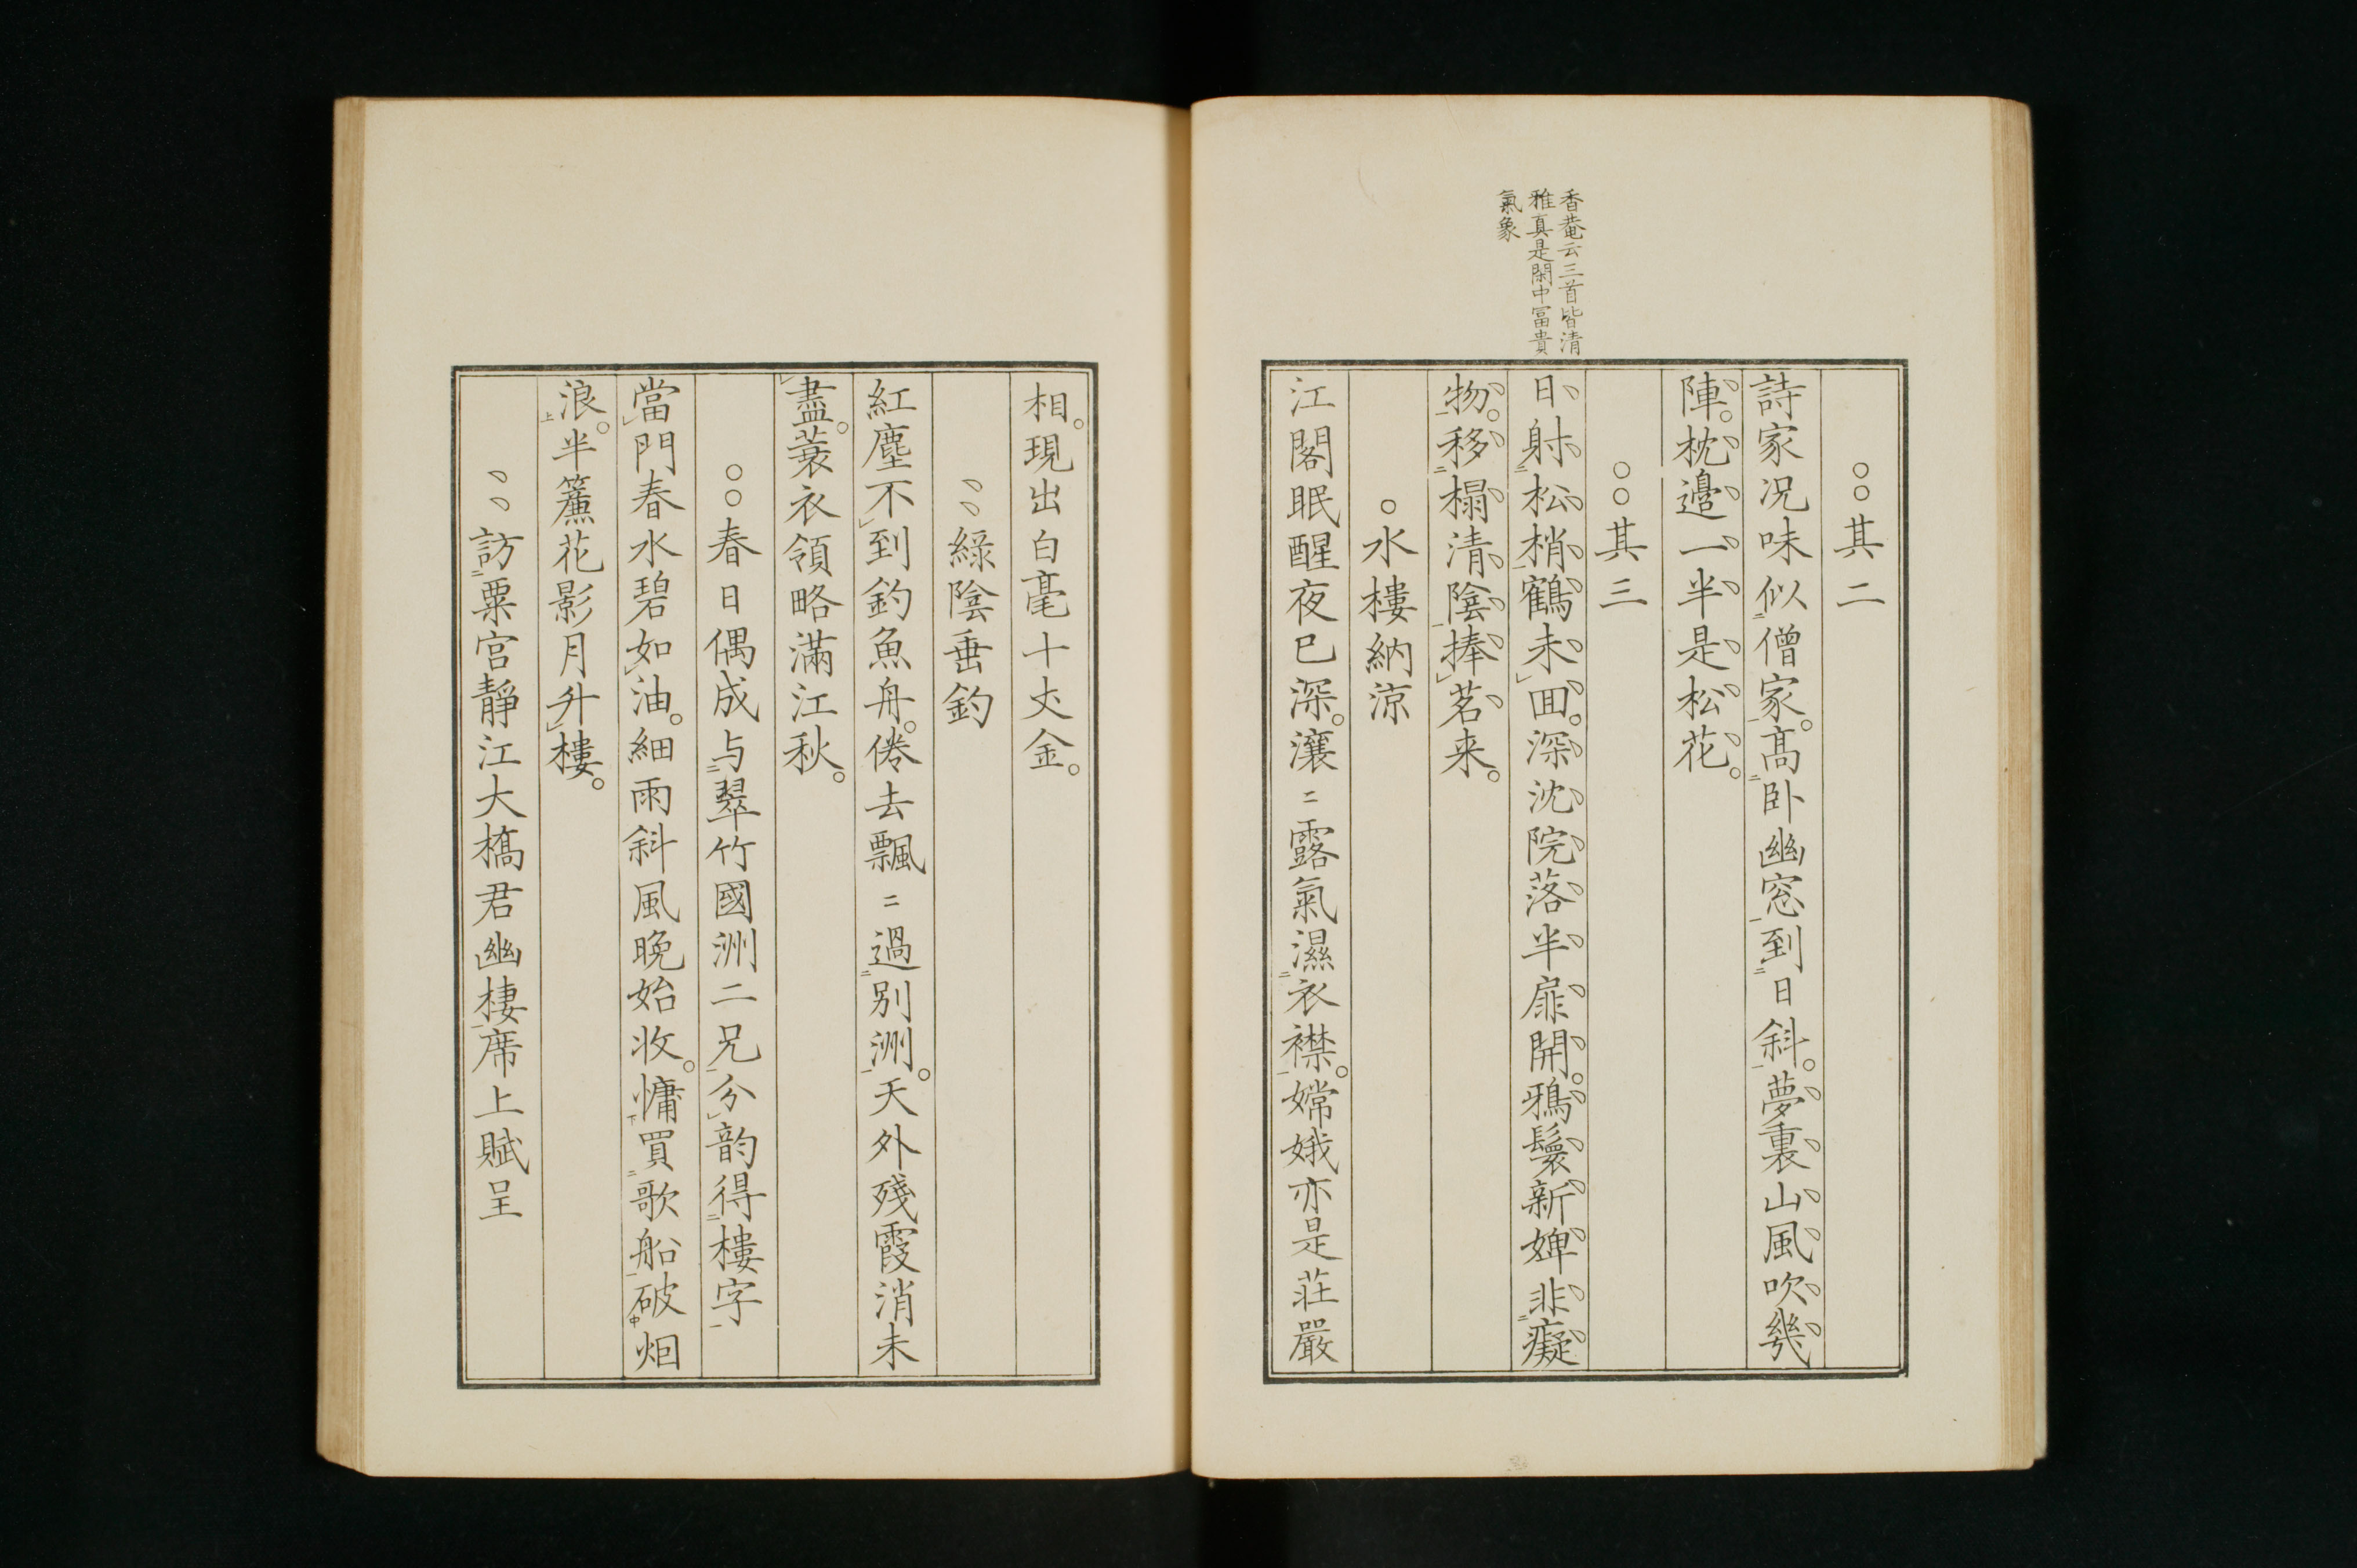 香菴云三首皆清
雅真是閑中冨貴
氣象
○○其二
詩家况味似僧家。高卧幽窓到日斜。夢裏山風吹幾
陣。枕邉一半是松花。
○○其三
日射松梢鶴未囬。深沈院落半扉開。鴉鬟新婢非癡
物。移榻清陰捧茗来。
○水樓納涼
江閣眠醒夜已深。瀼〻露氣濕衣襟。嫦娥亦是莊嚴
相。現出白毫十丈金。
綠陰垂釣
紅塵不到釣魚舟。倦去飄〻過別洲。天外殘霞消未
盡。蓑衣領略滿江秋。
○○春日偶成与翠竹國洲二兄分韵得樓字
當門春水碧如油。細雨斜風晚始收。慵買歌船破烟
浪。半簾花影月升樓。
訪粟宮靜江大橋君幽棲席上賦呈